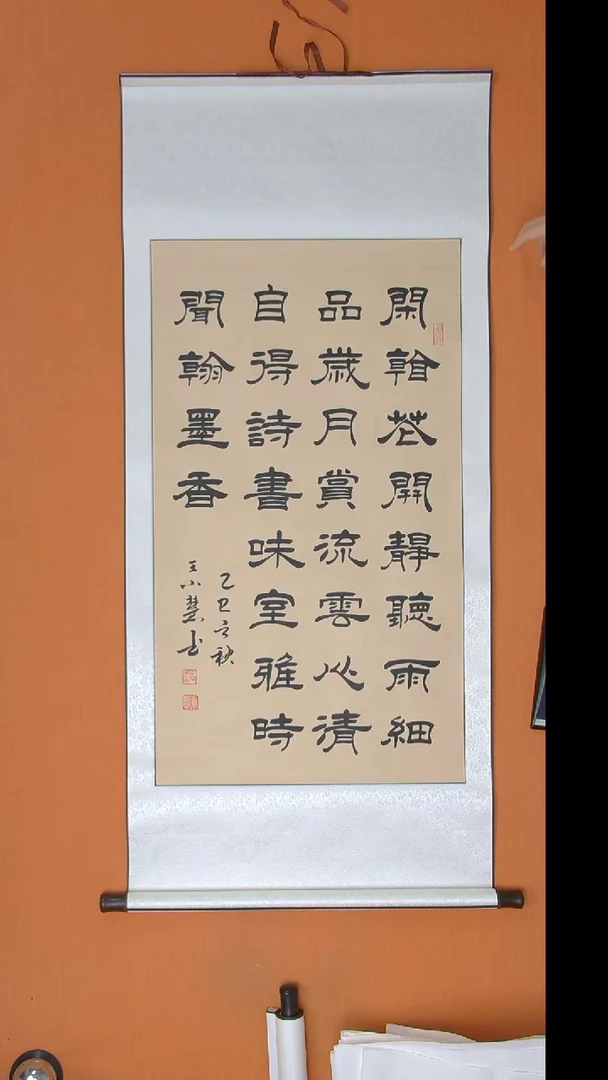 閑看花開靜聽雨細
品歲月賞流雲心清
自得詩書味室雅時
聞翰墨香
乙巳秋
王小慧书